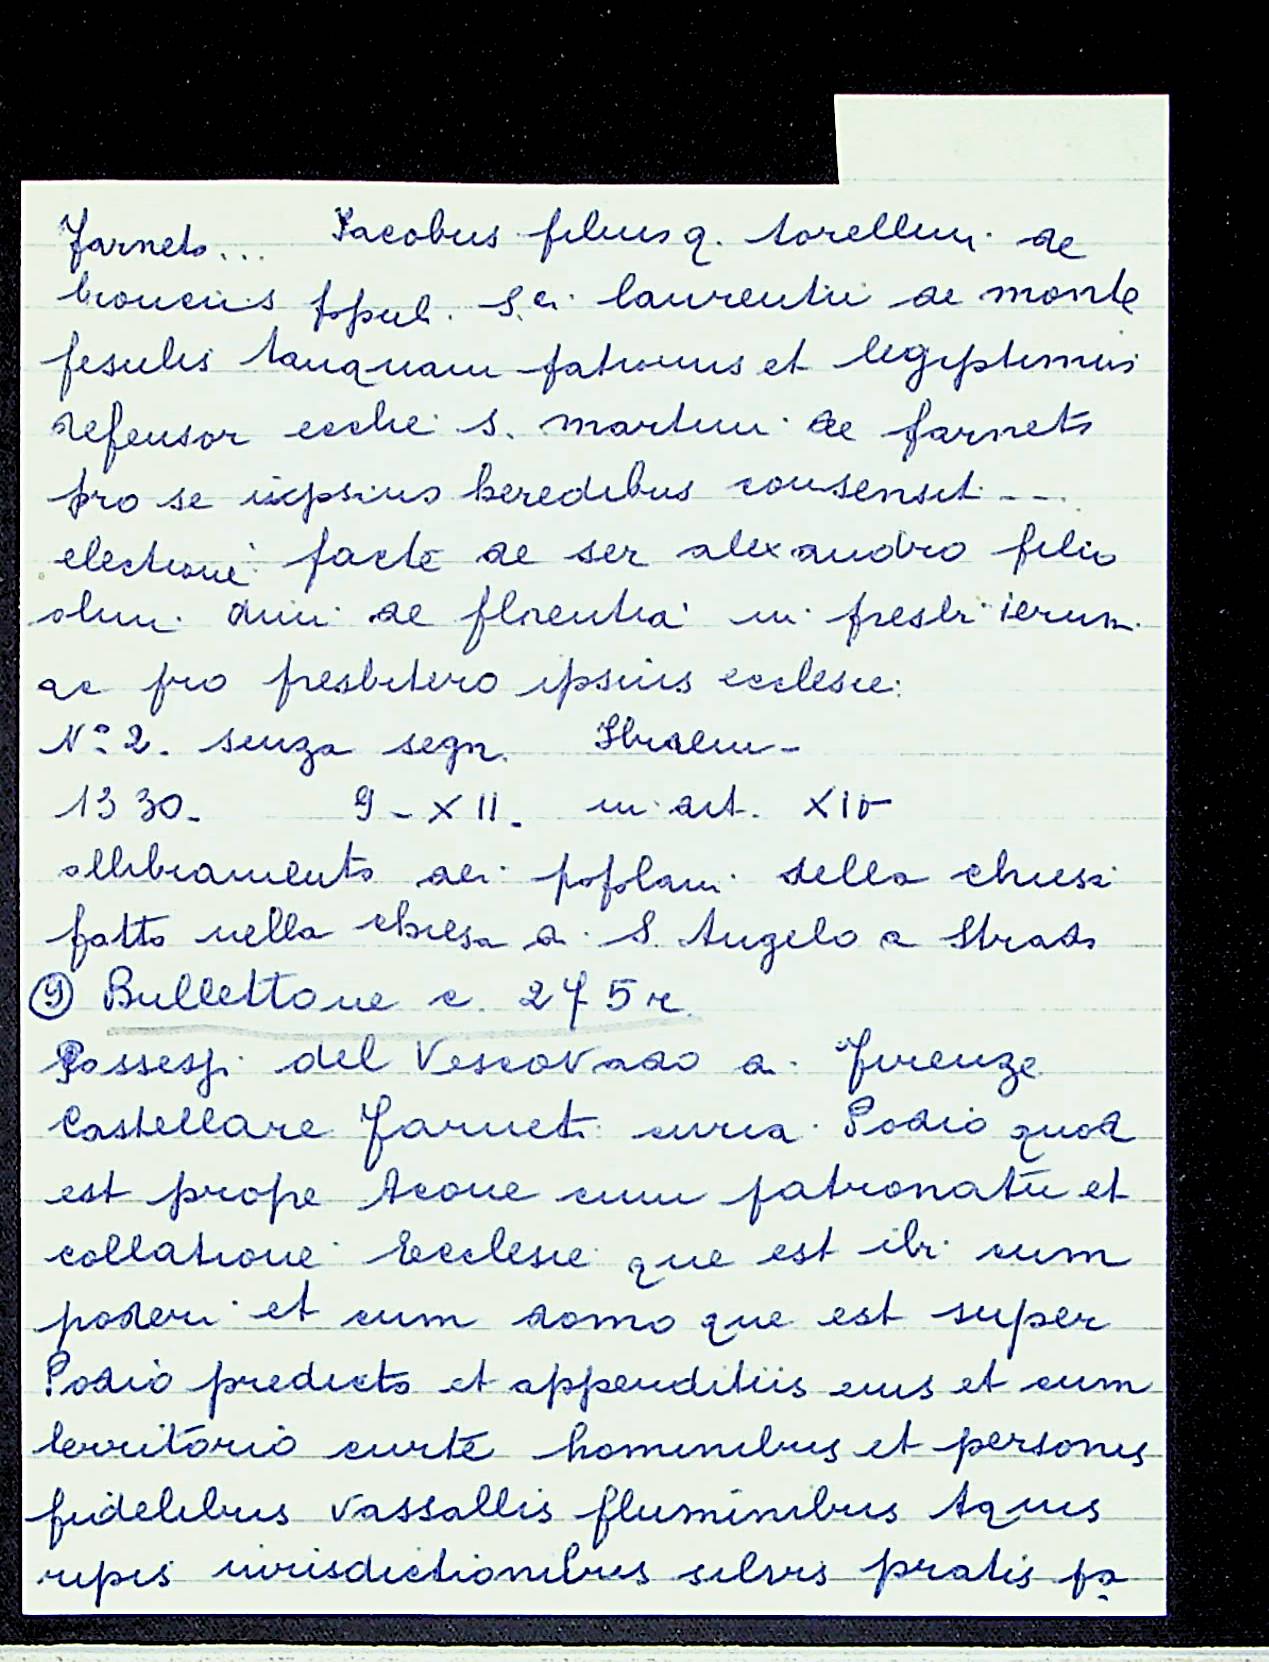 Farneto... Iacobus filius q. torellini de
broncis ppul. Sci laurentii de monte
fesulis tanquam patronus et legiptimus
defensor ecclie s. martini de farneto
pro se ipsius heredibus consensit ---
electioni facte de ser alexandro filio
olim dini de florentia in presbi
ac pro presbitero ipsius ecclesie:
N° 2. senza segn. Ibidem -
1330. 9 - XII. in ait. XIV
allibramento dei popolani della chiesa
fatto nella chiesa di S. Angelo a Strada
⑨ Bullettone c. 275 r.
Possessi del Vescovado di Firenze
Castellare Farneti curia Podio quod
est prope Acone cum patronatu et
collatione Ecclesie que est ibi cum
poderi et cum domo que est super
Podio predicto et appenditiis eius et cum
territorio curte hominibus et personis
fidelibus vassallis fluminibus Aquis
ripis iurisdictionibus silvis pratis pa